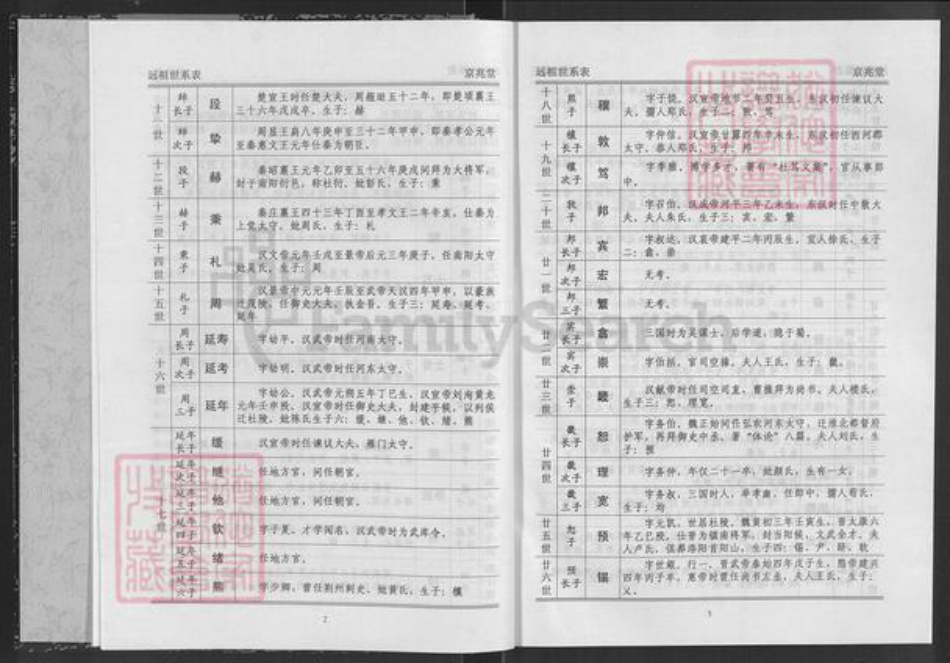 远祖世系表
京兆堂
十二世
绰长子
段
楚宣王时任楚大夫，周赧王五十二年，即楚顷襄王
三十六年戊戌卒，生子：赫
次子
挚
周显王扁八年庚申至三十二年甲申，即秦孝公元年
至秦惠文王元年仕秦为朝臣。
十二世
段子
赫
秦昭襄王元年乙卯至五十六年庚戌间拜为大将军，
封于南阳衍邑，称杜衍。妣彭氏，生子：秉
十三世
赫子
秉
秦庄襄王四十三年丁酉至孝文王二年辛亥，仕秦为
上党太守，妣周氏，生子：札
十四世
秉子
札
汉文帝元年壬戌至景帝后元三年庚子，任南阳太守
妣吴氏，生子：周
十五世
札子
周
汉景帝中元元年壬辰至武帝天汉四年甲申，以豪族
迁茂陵，任御史大夫、执金吾，生子三：延寿、延考、
延年
十六世
周长子
延寿
字幼平，汉武帝时任河南太守。
周次子
延考
字幼明，汉武帝时任河东太守。
周三子
延年
字幼公，汉武帝元朔五年丁巳生，汉宣帝刘询黄龙
元年壬申殁，汉宣帝时任御史大夫，封建平侯，以列侯
迁杜陵，妣陈氏生子六：缓、继、他、钦、绪、熊
十七世
延年长子
缓
汉宣帝时任谏议大夫，雁门太守。
延年次子
继
任地方官，间任朝官。
延年三子
他
任地方官，间任朝官。
延年四子
钦
字子夏，才学闻名，汉武帝时为武库令。
延年五子
绪
任地方官。
延年六子
熊
字少卿，曾任荆州刺史，妣黄氏，生子：穰
2
远祖世系表
京兆堂
十八世
熊子
穰
字子饶，汉宣帝地节二年癸丑生，东汉初任谏议大
夫，孺人郑氏，生子二：敦、笃
十九世
穰长子
敦
字仲信，汉宣帝甘露四年辛未生，东汉初任西河郡
太守，恭人郑氏，生子：邦
穰次子
笃
字季雅，博学多才，著有“杜笃文集”，官从事郎
中。
二十世
敦子
邦
字召伯，汉成帝河平三年乙未生，东汉时任中散大
夫，夫人朱氏，生子三：宾、宏、繁
廿一世
邦长子
宾
字叔达，汉哀帝建平二年丙辰生，宜人徐氏，生子
二：翕、崇
邦次子
宏
无考。
邦三子
繁
无考。
廿二世
宾长子
翕
三国时为吴谋士，后学道，隐于蜀。
宾次子
崇
字伯括，官司空掾，夫人王氏，生子：畿。
廿三世
崇子
畿
汉献帝时任司空司直、曹操拜为尚书，夫人楼氏，
生子三：恕、理宽。
廿四世
畿长子
恕
字务伯，魏正始间任弘农河东太守，迁淮北都督府
护军，再拜御史中丞，著“体论”八篇，夫人刘氏，生
子：预
畿次子
理
字务仲，年仅二十一卒，妣颜氏，生有一女。
畿三子
宽
字务叔，三国时人，举孝廉，任郎中，孺人荀氏，
生子：均
廿五世
恕子
预
字元凯，世居杜陵，魏黄初三年壬寅生，晋太康六
年乙巳殁，仕晋为镇南将军，封当阳侯，文武全才，夫
人卢氏，俱葬洛阳首阳山，生子四：锡、尹、跻、耽
廿六世
预长子
锡
字世嘏，行一，晋武帝泰始四年戊子生，愍帝建兴
四年丙子卒，惠帝时曾任尚书左丞，夫人王氏，生子：
乂。
3
FamilySearch